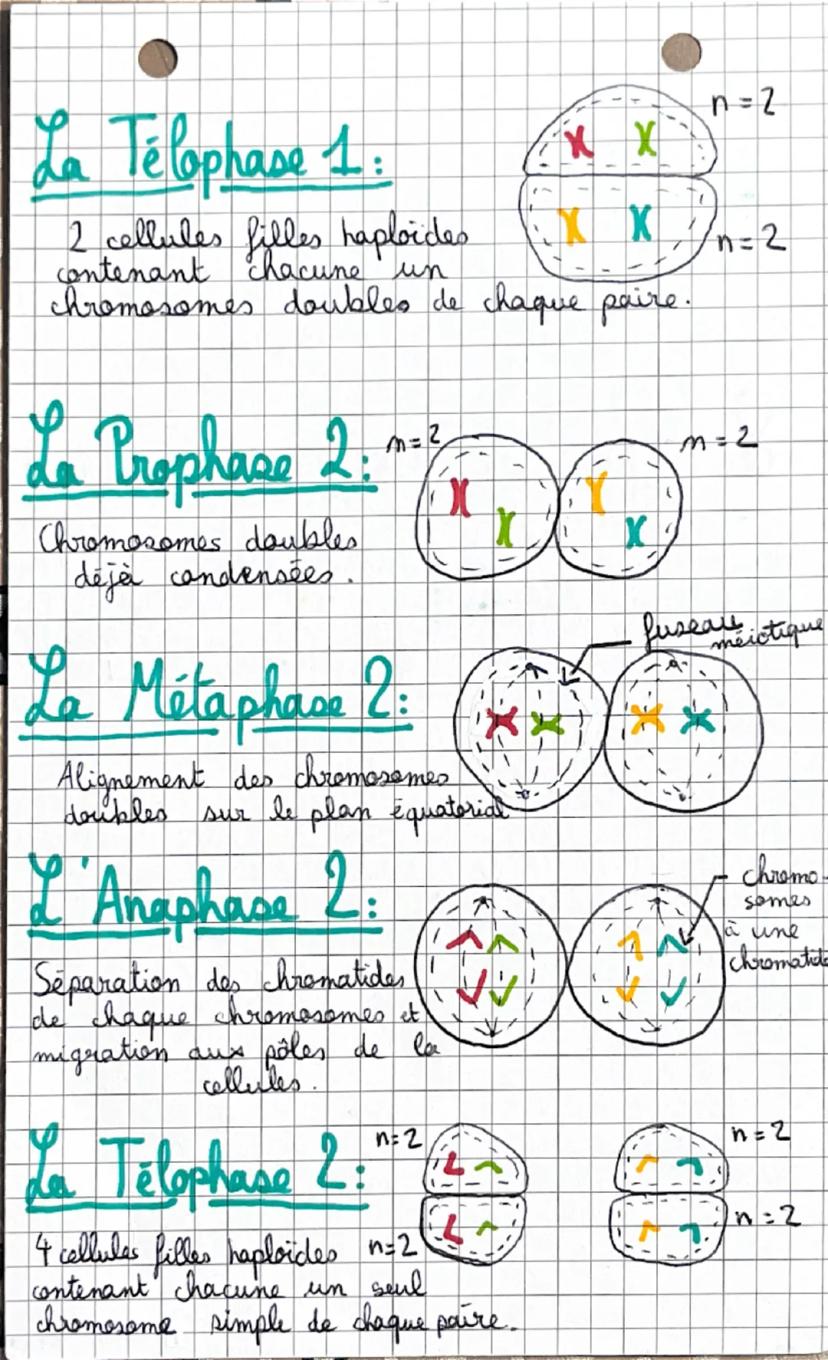 La Télophase 1:
n = 2
2 cellules filles haploïdes
contenant chacune un
chromosomes doubles de chaque paire.
n = 2
La Prophase 2:
n = 2
n = 2
Chromosomes doubles
déjà condensées.
fuseau
méiotique
La Métaphase 2:
Alignement des chromosomes
doubles sur le plan équatorial
L'Anaphase 2:
chromo-
somes
à une
chromatide
Séparation des chromatides
de chaque chromosomes et
migration aux pôles de la
cellules.
La Télophase 2:
n = 2
n = 2
4 cellules filles haploïdes
n = 2
n = 2
contenant chacune un seul
chromosome simple de chaque paire.